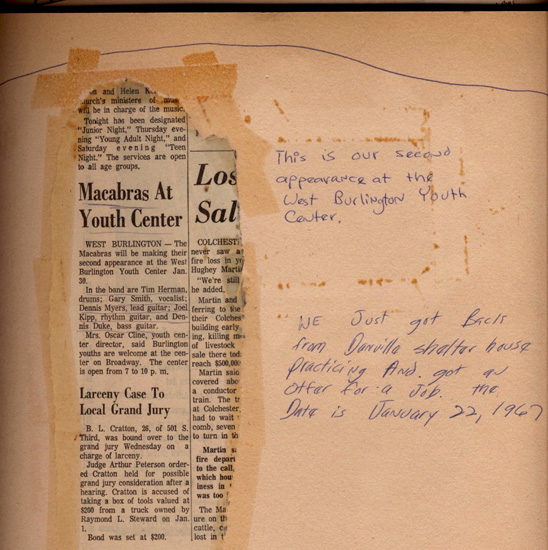 and Helen
church's ministers of music
will be in charge of the music.
Tonight has been designated
"Junior Night," Thursday eve-
ning "Young Adult Night," and
Saturday evening "Teen
Night." The services are open
to all age groups.
Macabras At
Youth Center
WEST BURLINGTON — The
Macabras will be making their
second appearance at the West
Burlington Youth Center Jan.
30.
In the band are Tim Herman,
drums; Gary Smith, vocalist;
Dennis Myers, lead guitar; Joel
Kipp, rhythm guitar, and Den-
nis Duke, bass guitar.
Mrs. Oscar Cline, youth cen-
ter director, said Burlington
youths are welcome at the cen-
ter on Broadway. The center
is open from 7 to 10 p. m.
Larceny Case To
Local Grand Jury
B. L. Cratton, 26, of 501 S.
Third, was bound over to the
grand jury Wednesday on a
charge of larceny.
Judge Arthur Peterson order-
ed Cratton held for possible
grand jury consideration after a
hearing. Cratton is accused of
taking a box of tools valued at
$200 from a truck owned by
Raymond L. Steward on Jan.
1.
Bond was set at $200.
Los
Sal
COLCHEST
never saw a
fire loss in y
Hughey Marti
"We're still
he added.
Martin and
ferring to the
their Colches
building early
ing, killing m
of livestock
sale there tod
reach $500,00
Martin said
covered abo
a conductor
train. The t
at Colchester,
had to wait
comb, seven
to turn in th
Martin s
fire depart
to the call,
which hou
iness in
was too
The Ma
ure on th
cattle, c
lost in t
This is our second
appearance at the
West Burlington Youth
Center.
WE Just got Back
from Danville shelter house
practicing And got an
Offer for a Job. the
Date is January 22, 1967